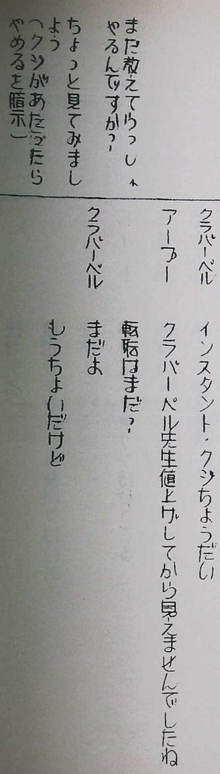 まだ教えてらっし
ゃるんですか？
ちょっと見てみまし
よう
（クジがあたったら
やめるを暗示）
クラバーベル　インスタント・クジちょうだい
アープー　クラバーベル先生値上げしてから見えませんでしたね
転職はまだ？
クラバーベル　まだよ
もうちょいだけど